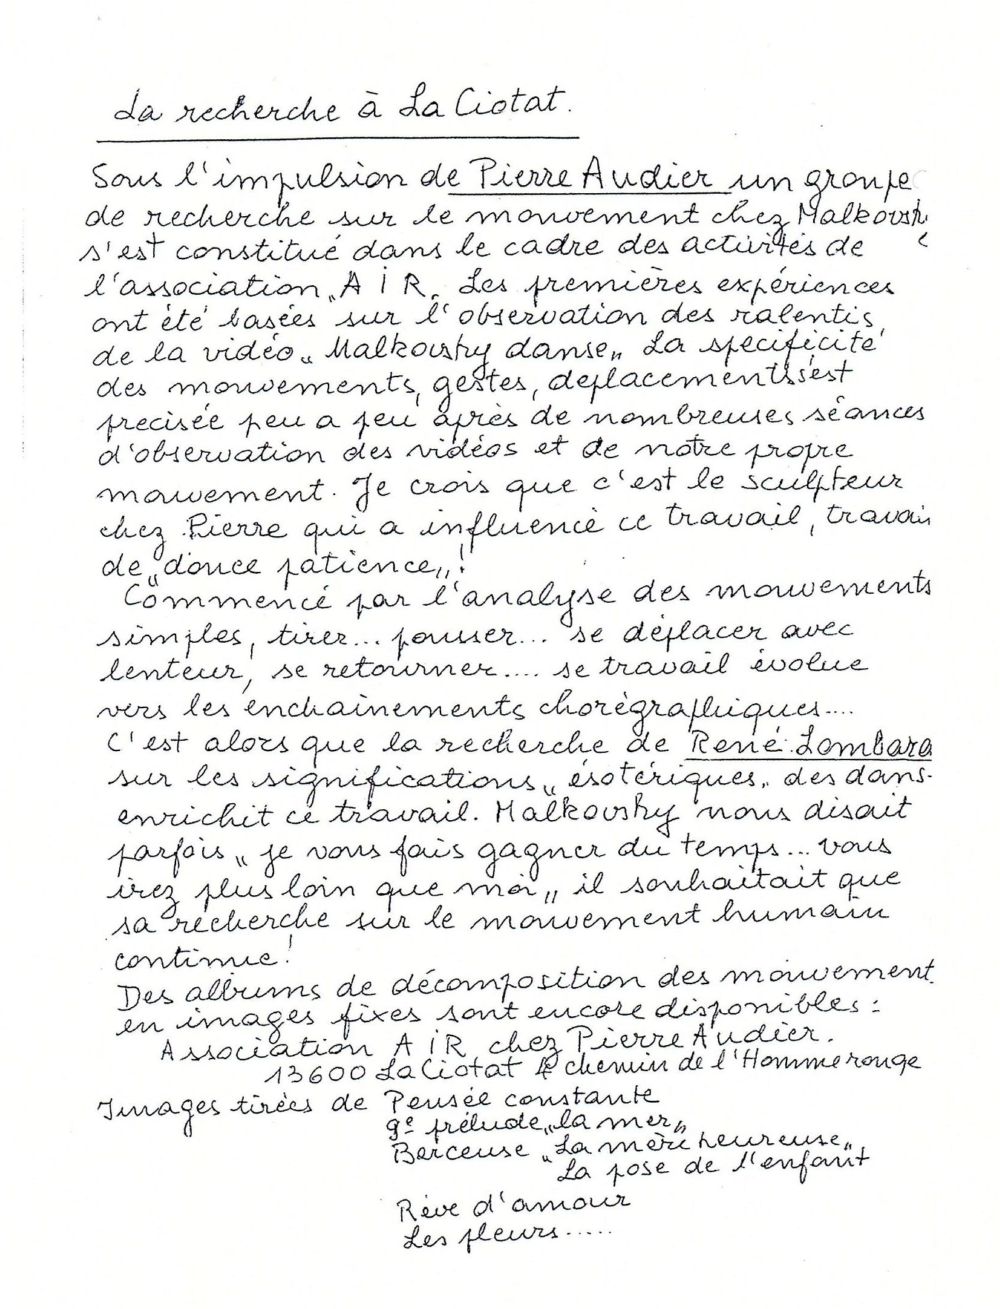 La recherche à La Ciotat.
Sous l'impulsion de Pierre Audier un groupe
de recherche sur le mouvement chez Malkovsk
s'est constitué dans le cadre des activités de
l'association „A I R„ Les premières expériences
ont été basées sur l'observation des ralentis,
de la vidéo „Malkovsky danse„ La spécificité
des mouvements, gestes, deplacements s'est
precisée peu a peu après de nombreuses séances
d'observation des vidéos et de notre propre
mouvement. Je crois que c'est le sculpteur
chez Pierre qui a influencé ce travail, travail
de „douce patience„!
Commencé par l'analyse des mouvements
simples, tirer... pousser... se déplacer avec
lenteur, se retourner.... se travail évolue
vers les enchainements chorégraphiques....
C'est alors que la recherche de René Lombard
sur les significations „ésotériques„ des dans-
enrichit ce travail. Malkovsky nous disait
parfois „je vous fais gagner du temps... vous
irez plus loin que moi„ il souhaitait que
sa recherche sur le mouvement humain
continue!
Des albums de décomposition des mouvement
en images fixes sont encore disponibles :
Association A I R chez Pierre Audier.
13600 La Ciotat 4 chemin de l'Homme rouge
Images tirées de Pensée constante
9e prélude „la mer„
Berceuse „La mère heureuse„
La pose de l'enfant
Rêve d'amour
Les fleurs.....